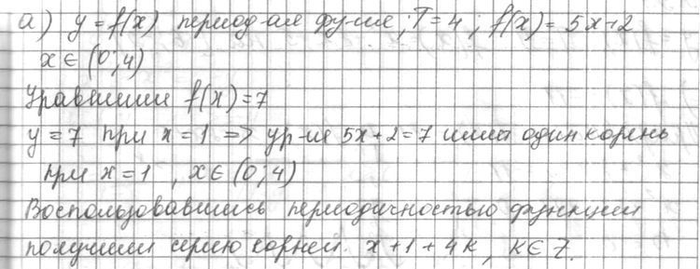 а) y = f(x) период-ая фу-ия ; T = 4 ; f(x) = 5x+2
x ∈ (0; 4)
Уравнения f(x) = 7
y = 7 при x = 1 => ур-ие 5x+2=7 имеет один корень
при x = 1 , x ∈ (0; 4)
Воспользовавшись периодичностью функции
получим серию корней. x + 1 + 4k, k ∈ Z.